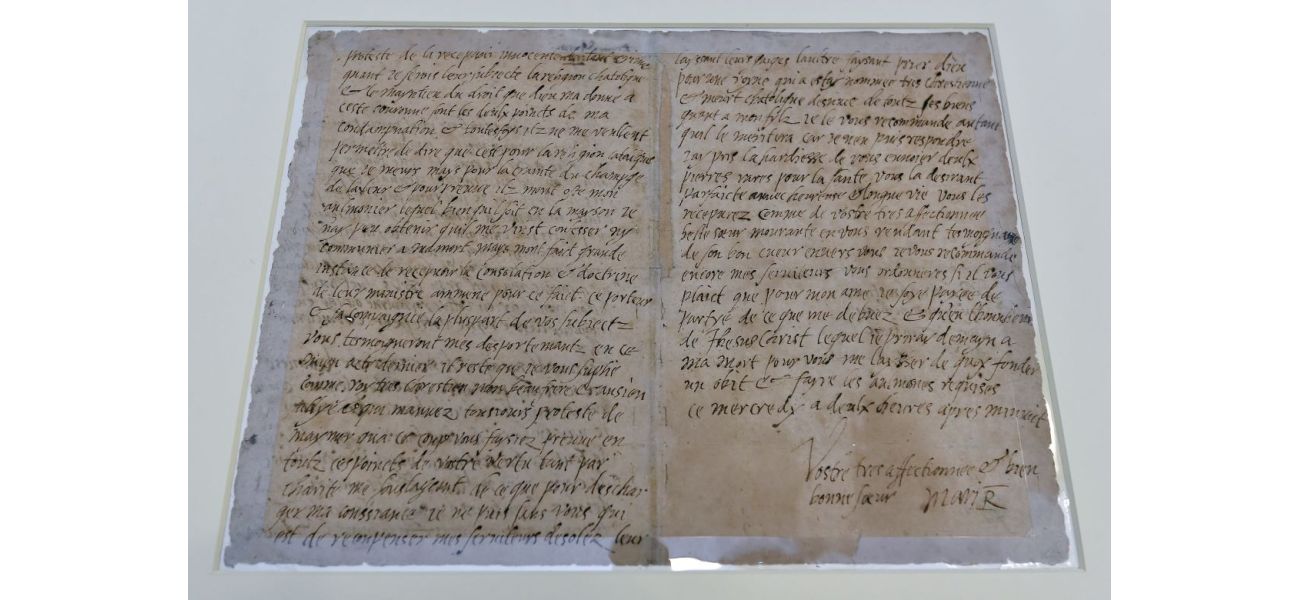 proteste de la recepvoir innocente de tout crime
quant je serois leur subjecte la religion chatolique
& le mayntien du droit que dieu ma donne a
ceste couronne sont les deulx poincts de ma
condampnation & toutesfoys ilz ne me veullent
permettre de dire que cest pour la religion catolique
que je meurs mays pour la crainte du champge
de la leur & pour preuve ilz mont oste mon
aulmonier lequel bien quil soit en la mayson je
nay peu obtenir quil me vinst confesser ny
communier a ma mort mays mont fait grande
instance de recepvoir la consolation & doctrine
de leur ministre ammene pour ce fait ce porteur
& sa compaignie la pluspart de vos subjectz
vous tesmoigneront mes desportemantz en ce
mien acte dernier il reste que je vous suplie
comme roy tres chrestien mon beaufrere & ansien
allye & qui mavvez tousjours proteste de
maymer qua ce coup vous faysiez preuve en
toutz ces poincts de vostre vertu tant par
charite me soulageant de ce que pour deschar
ger ma conssiance je ne puis sans vous qui
est de recompenser mes serviteurs desolez leur
layssant leurs gaiges laultre faysant prier dieu
pour une royne qui a estay nommee tres chrestienne
& meurt chatolique desnuee de toutz ses biens
quant a mon filz je le vous recommande autant
quil le meritera car je nen puis respondre
jay pris la hardiesse de vous envoier deulx
pierres rares pour la sante vous la desirant
parfaicte avvec heureuse & longue vie vous les
recepvrez comme de vostre tres affectionnee
belle sœur mourante en vous rendant tesmoygnage
de son bon cueur envers vous je vous recommande
encore mes serviteurs vous ordonneres si il vous
plaict que pour mon ame je soye payee de
partye de ce que me debvez & quen lhonneur
de Jhesus Christ lequel je priray demayn a
ma mort pour vous me laysser de quoy fonder
un obit & fayre les aulmones requises
ce mercredy a deulx heures apres minuict
Vostre tres affectionnee & bien
bonne sœur MARI R